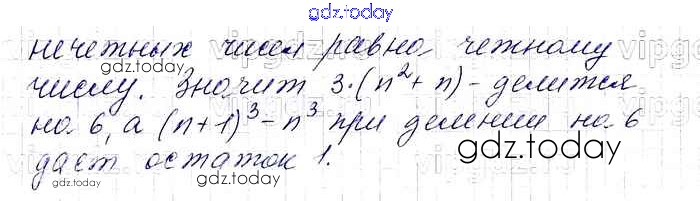 gdz.today
нечетных чисел равно четному
числу. Значит 3·(n²+n) - делится
на 6, а (n+1)³-n³ при делении на 6
дает остаток 1.
gdz.today
gdz.today
gdz.today
gdz.today